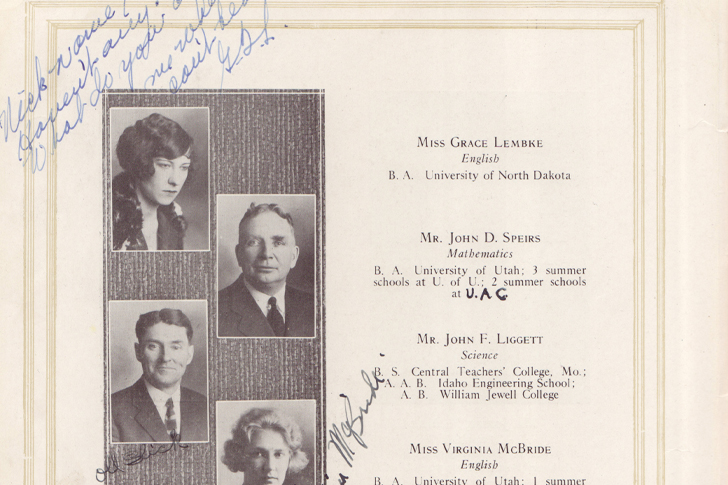 Nick-name?
Haven't any.
What do you
me when
can't
G.L.
Miss Grace Lembke
English
B. A. University of North Dakota
Mr. John D. Speirs
Mathematics
B. A. University of Utah; 3 summer
schools at U. of U.; 2 summer schools
at U.A.C.
Mr. John F. Liggett
Science
B. S. Central Teachers' College, Mo.;
A. A. B. Idaho Engineering School;
A. B. William Jewell College
McBride
Miss Virginia McBride
English
B. A. University of Utah; 1 summer